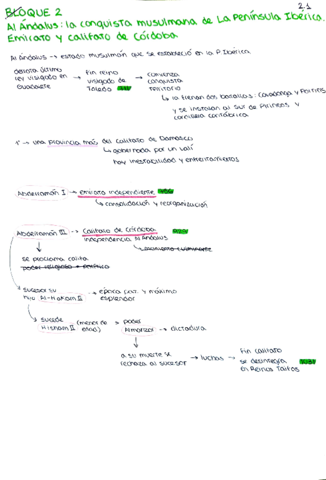 BLOQUE 2
2.1
Al Ándalus: la conquista musulmana de La Península Ibérica.
Emirato y califato de Córdoba.
Al Ándalus → estado musulmán que se estableció en la P. Ibérica
derrota último rey visigodo en Guadalete → Fin reino visigodo de Toledo → comienza conquista territorio
↳ lo frenan dos batallas: Covadonga y Poitiers
y se instalan al sur de Pirineos y cordillera cantábrica
1º → una provincia más del califato de Damasco
↳ gobernada por un valí
hay inestabilidad y enfrentamientos
Abderramán I → emirato independiente
↳ consolidación y reorganización
Abderramán III → Califato de Córdoba
independencia Al Ándalus
se proclama califa
poder religioso + político
sucesor su hijo Al-Hakam II → época cult. y máximo esplendor
sucede Hisham II (menor de edad) → poder Almanzor → dictadura
a su muerte se rechaza al sucesor → luchas → Fin califato
se desintegra en Reinos Taifas
1031